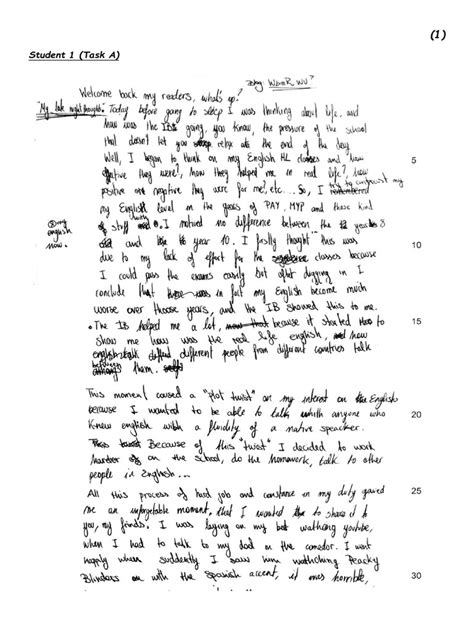 (1)
Student 1 (Task A)
Welcome back my readers, what's up?
"My late night thoughts" Today before going to sleep I was thinking about life, and
how was the IB going, you know, the pressure of the school
that doesn't let you relax at the end of the day
Well, I began to think on my English HL classes and "how
5
they were", how they helped me in real life?, how
positive or negative they were for me?, etc... So, I
my English level in the years of PAY, MYP and those kind
of stuff I noticed no difference between the year 8
my english now.
and year 10. I firstly thought this was
10
due to my lack of effort for the classes because
I could pass the exams easily but after digging in I
conclude that in fact my English become much
worse over those years, and the IB showed this to me.
The IB helped me a lot, because it started to
15
show me how was the real life english, how
different people from different countries talk
between them.
This moment caused a "Plot twist" on my interest on the English
because I wanted to be able to talk with anyone who
20
Knew english with a fluidity of a native speacker.
Because of this "twist" I decided to work
on the school, do the homework, talk to other
people in English...
All this process of hard job and constance in my duty gaved
25
me an unforgetable moment, that I wanted to share it to
you, my frinds. I was laying on my bet wathcing youtube,
when I had to talk to my dad on the comedor. I went
happly when suddenly I saw him wathching Peacky
Blinders on with the Spanish accent, it was horrible,
30